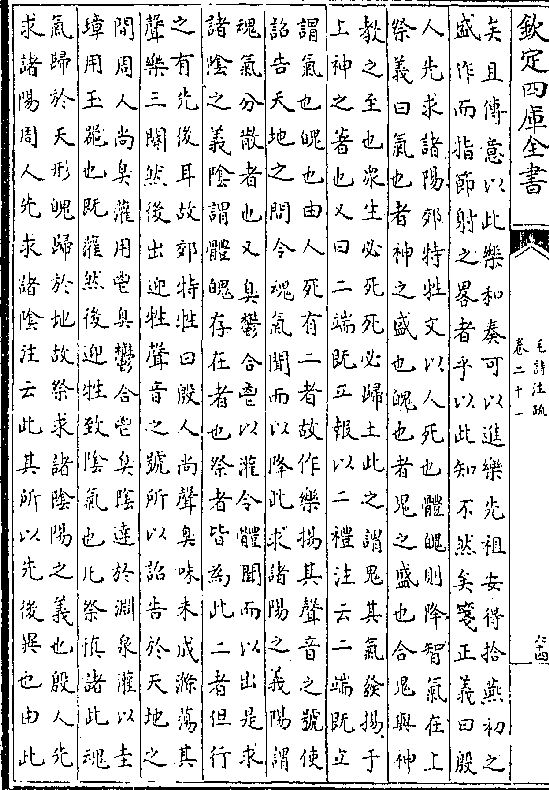 欽定四庫全書
毛詩注疏
卷二十一
六十四
矣且傳意以此樂和奏可以進樂先祖安得捨燕初之
盛作而指節射之畧者乎以此知不然矣箋正義曰殷
人先求諸陽郊特牲文以人死也體魄則降智氣在上
祭義曰氣也者神之盛也魄也者鬼之盛也合鬼與神
教之至也衆生必死死必歸土此之謂鬼其氣發揚于
上神之著也又曰二端既立報以二禮注云二端既立
謂氣也魄也由人死有二者故作樂揚其聲音之號使
詔告天地之間令魂氣聞而以降此求諸陽之義陽謂
魂氣分散者也又臭鬱合鬯以灌令體聞而以出是求
諸陰之義陰謂體魄存在者也祭者皆為此二者但行
之有先後耳故郊特牲曰殷人尚聲臭味未成滌蕩其
聲樂三闋然後出迎牲聲音之號所以詔告於天地之
間周人尚臭灌用鬯臭鬱合鬯臭陰達於淵泉灌以圭
璋用玉氣也既灌然後迎牲致陰氣也凡祭慎諸此魂
氣歸於天形魄歸於地故祭求諸陰陽之義也殷人先
求諸陽周人先求諸陰注云此其所以先後異也由此